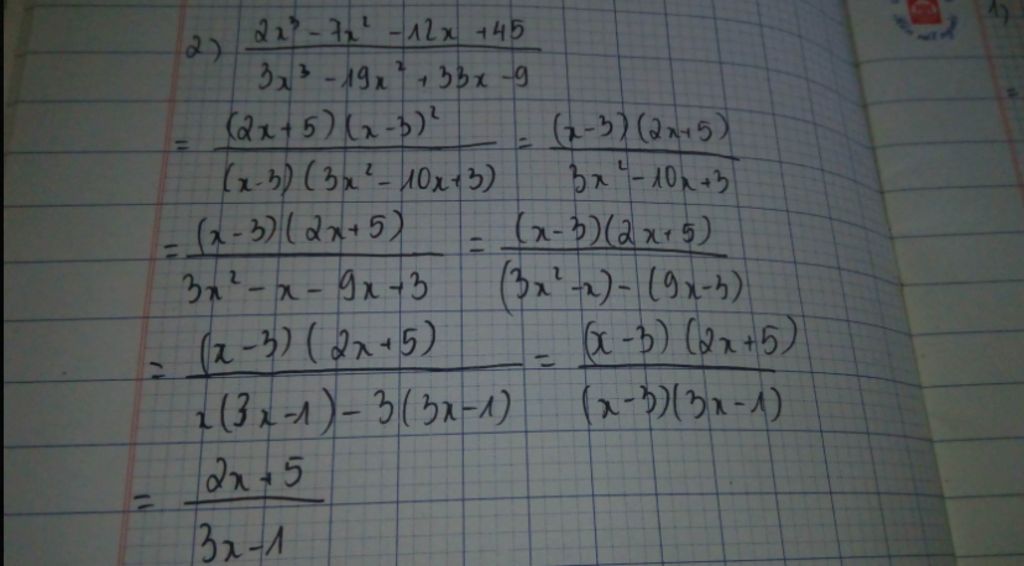 2) (2x³ - 7x² - 12x + 45) / (3x³ - 19x² + 33x - 9)
= ((2x+5)(x-3)²) / ((x-3)(3x² - 10x+3)) = ((x-3)(2x+5)) / (3x² - 10x+3)
= ((x-3)(2x+5)) / (3x² - x - 9x + 3) = ((x-3)(2x+5)) / ((3x² - x) - (9x-3))
= ((x-3)(2x+5)) / (x(3x-1) - 3(3x-1)) = ((x-3)(2x+5)) / ((x-3)(3x-1))
= (2x+5) / (3x-1)
1)
=